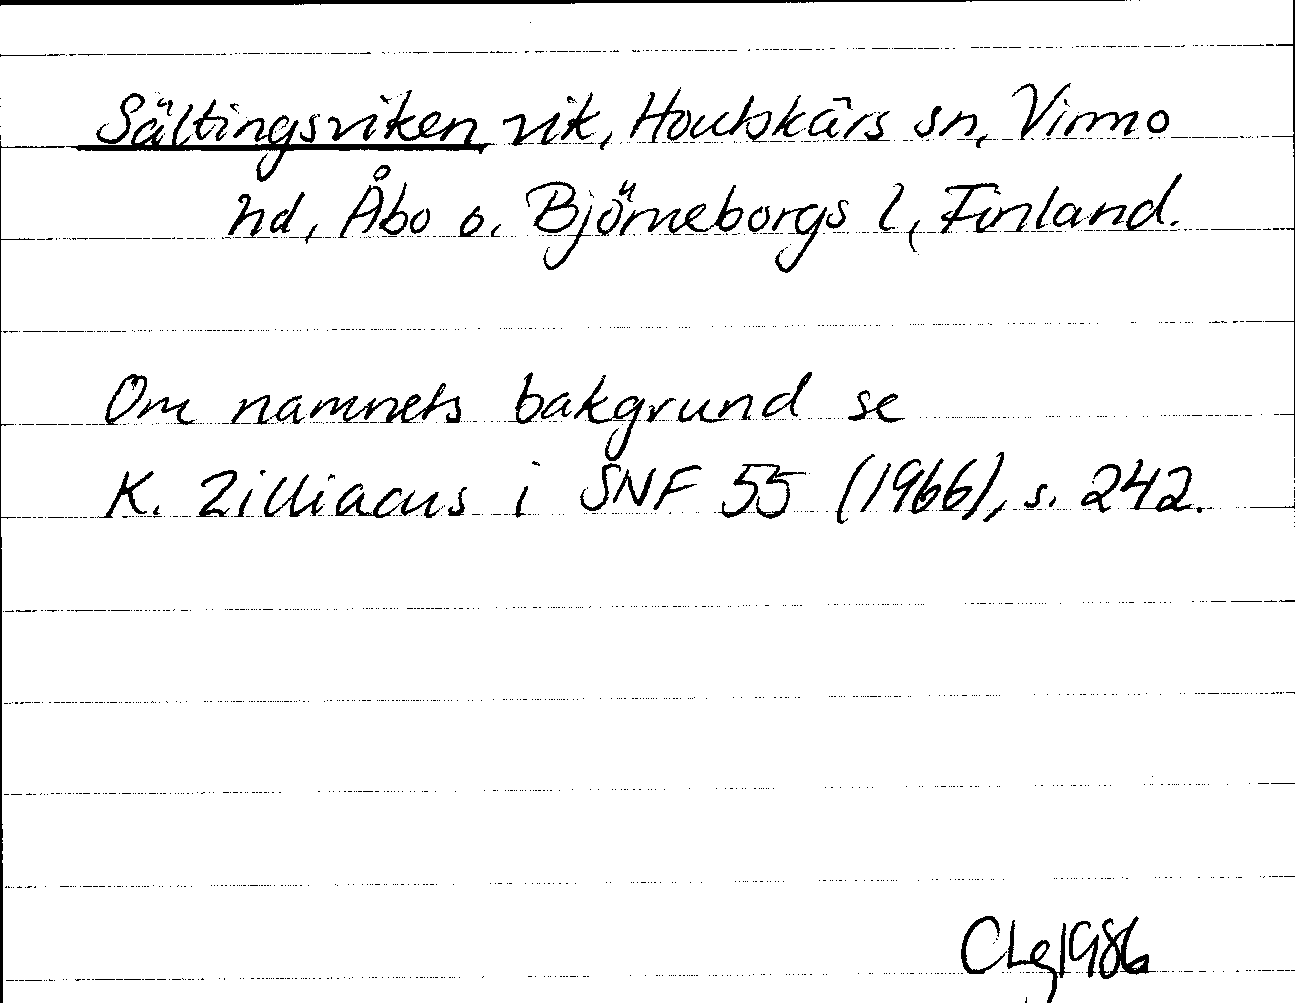 Sältingsviken, vik, Houtskärs sn, Virmo
hd, Åbo o. Björneborgs l, Finland.
Om namnets bakgrund se
K. Zilliacus i SNF 55 (1966), s. 242.
CLg 1986